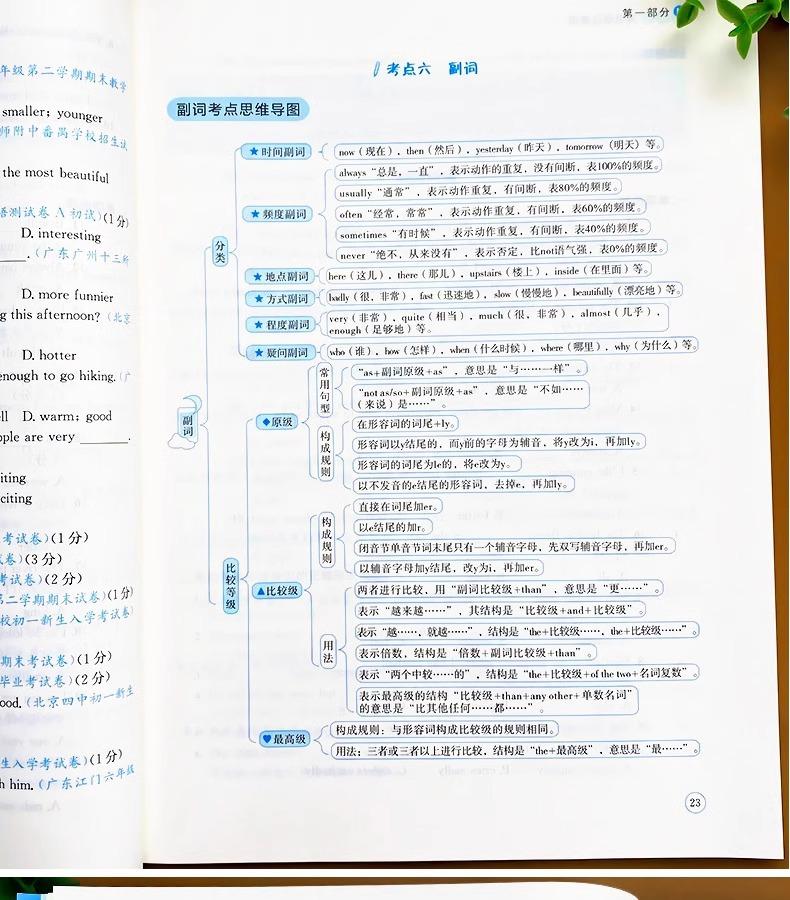 第一部分
年级第二学期期末教学
smaller; younger
师附中番禺学校招生试
the most beautiful
语测试卷 A 初试)(1分)
D. interesting
(广东广州十三所
D. more funnier
g this afternoon? (北京
D. hotter
enough to go hiking. (广
ell D. warm; good
ople are very ______.
iting
citing
考试卷)(1分)
试卷)(3分)
考试卷)(2分)
第二学期期末试卷)(1分)
校初一新生入学考试卷)
期末考试卷)(1分)
毕业考试卷)(2分)
ood. (北京四中初一新生
生入学考试卷)(1分)
h him. (广东江门六年级
考点六 副词
副词考点思维导图
副词
分类
★时间副词
now (现在), then (然后), yesterday (昨天), tomorrow (明天) 等。
★频度副词
always “总是, 一直”, 表示动作的重复, 没有间断, 表100%的频度。
usually “通常”, 表示动作重复, 有间断, 表80%的频度。
often “经常, 常常”, 表示动作重复, 有间断, 表60%的频度。
sometimes “有时候”, 表示动作重复, 有间断, 表40%的频度。
never “绝不, 从来没有”, 表示否定, 比not语气强, 表0%的频度。
★地点副词
here (这儿), there (那儿), upstairs (楼上), inside (在里面) 等。
★方式副词
badly (很, 非常), fast (迅速地), slow (慢慢地), beautifully (漂亮地) 等。
★程度副词
very (非常), quite (相当), much (很, 非常), almost (几乎),
enough (足够地) 等。
★疑问副词
who (谁), how (怎样), when (什么时候), where (哪里), why (为什么) 等。
比较等级
◆原级
常用句型
“as+副词原级+as”, 意思是“与……一样”。
“not as/so+副词原级+as”, 意思是“不如……
(来说) 是……”。
构成规则
在形容词的词尾+ly。
形容词以y结尾的, 而y前的字母为辅音, 将y改为i, 再加ly。
形容词的词尾为le的, 将e改为y。
以不发音的e结尾的形容词, 去掉e, 再加ly。
▲比较级
构成规则
直接在词尾加er。
以e结尾的加r。
闭音节单音节词末尾只有一个辅音字母, 先双写辅音字母, 再加er。
以辅音字母加y结尾, 改y为i, 再加er。
用法
两者进行比较, 用“副词比较级+than”, 意思是“更……”。
表示“越来越……”, 其结构是“比较级+and+比较级”。
表示“越……, 就越……”, 结构是“the+比较级……, the+比较级……”。
表示倍数, 结构是“倍数+副词比较级+than”。
表示“两个中较……的”, 结构是“the+比较级+of the two+名词复数”。
表示最高级的结构“比较级+than+any other+单数名词”
的意思是“比其他任何……都……”。
♥最高级
构成规则: 与形容词构成比较级的规则相同。
用法: 三者或三者以上进行比较, 结构是“the+最高级”, 意思是“最……”。
23